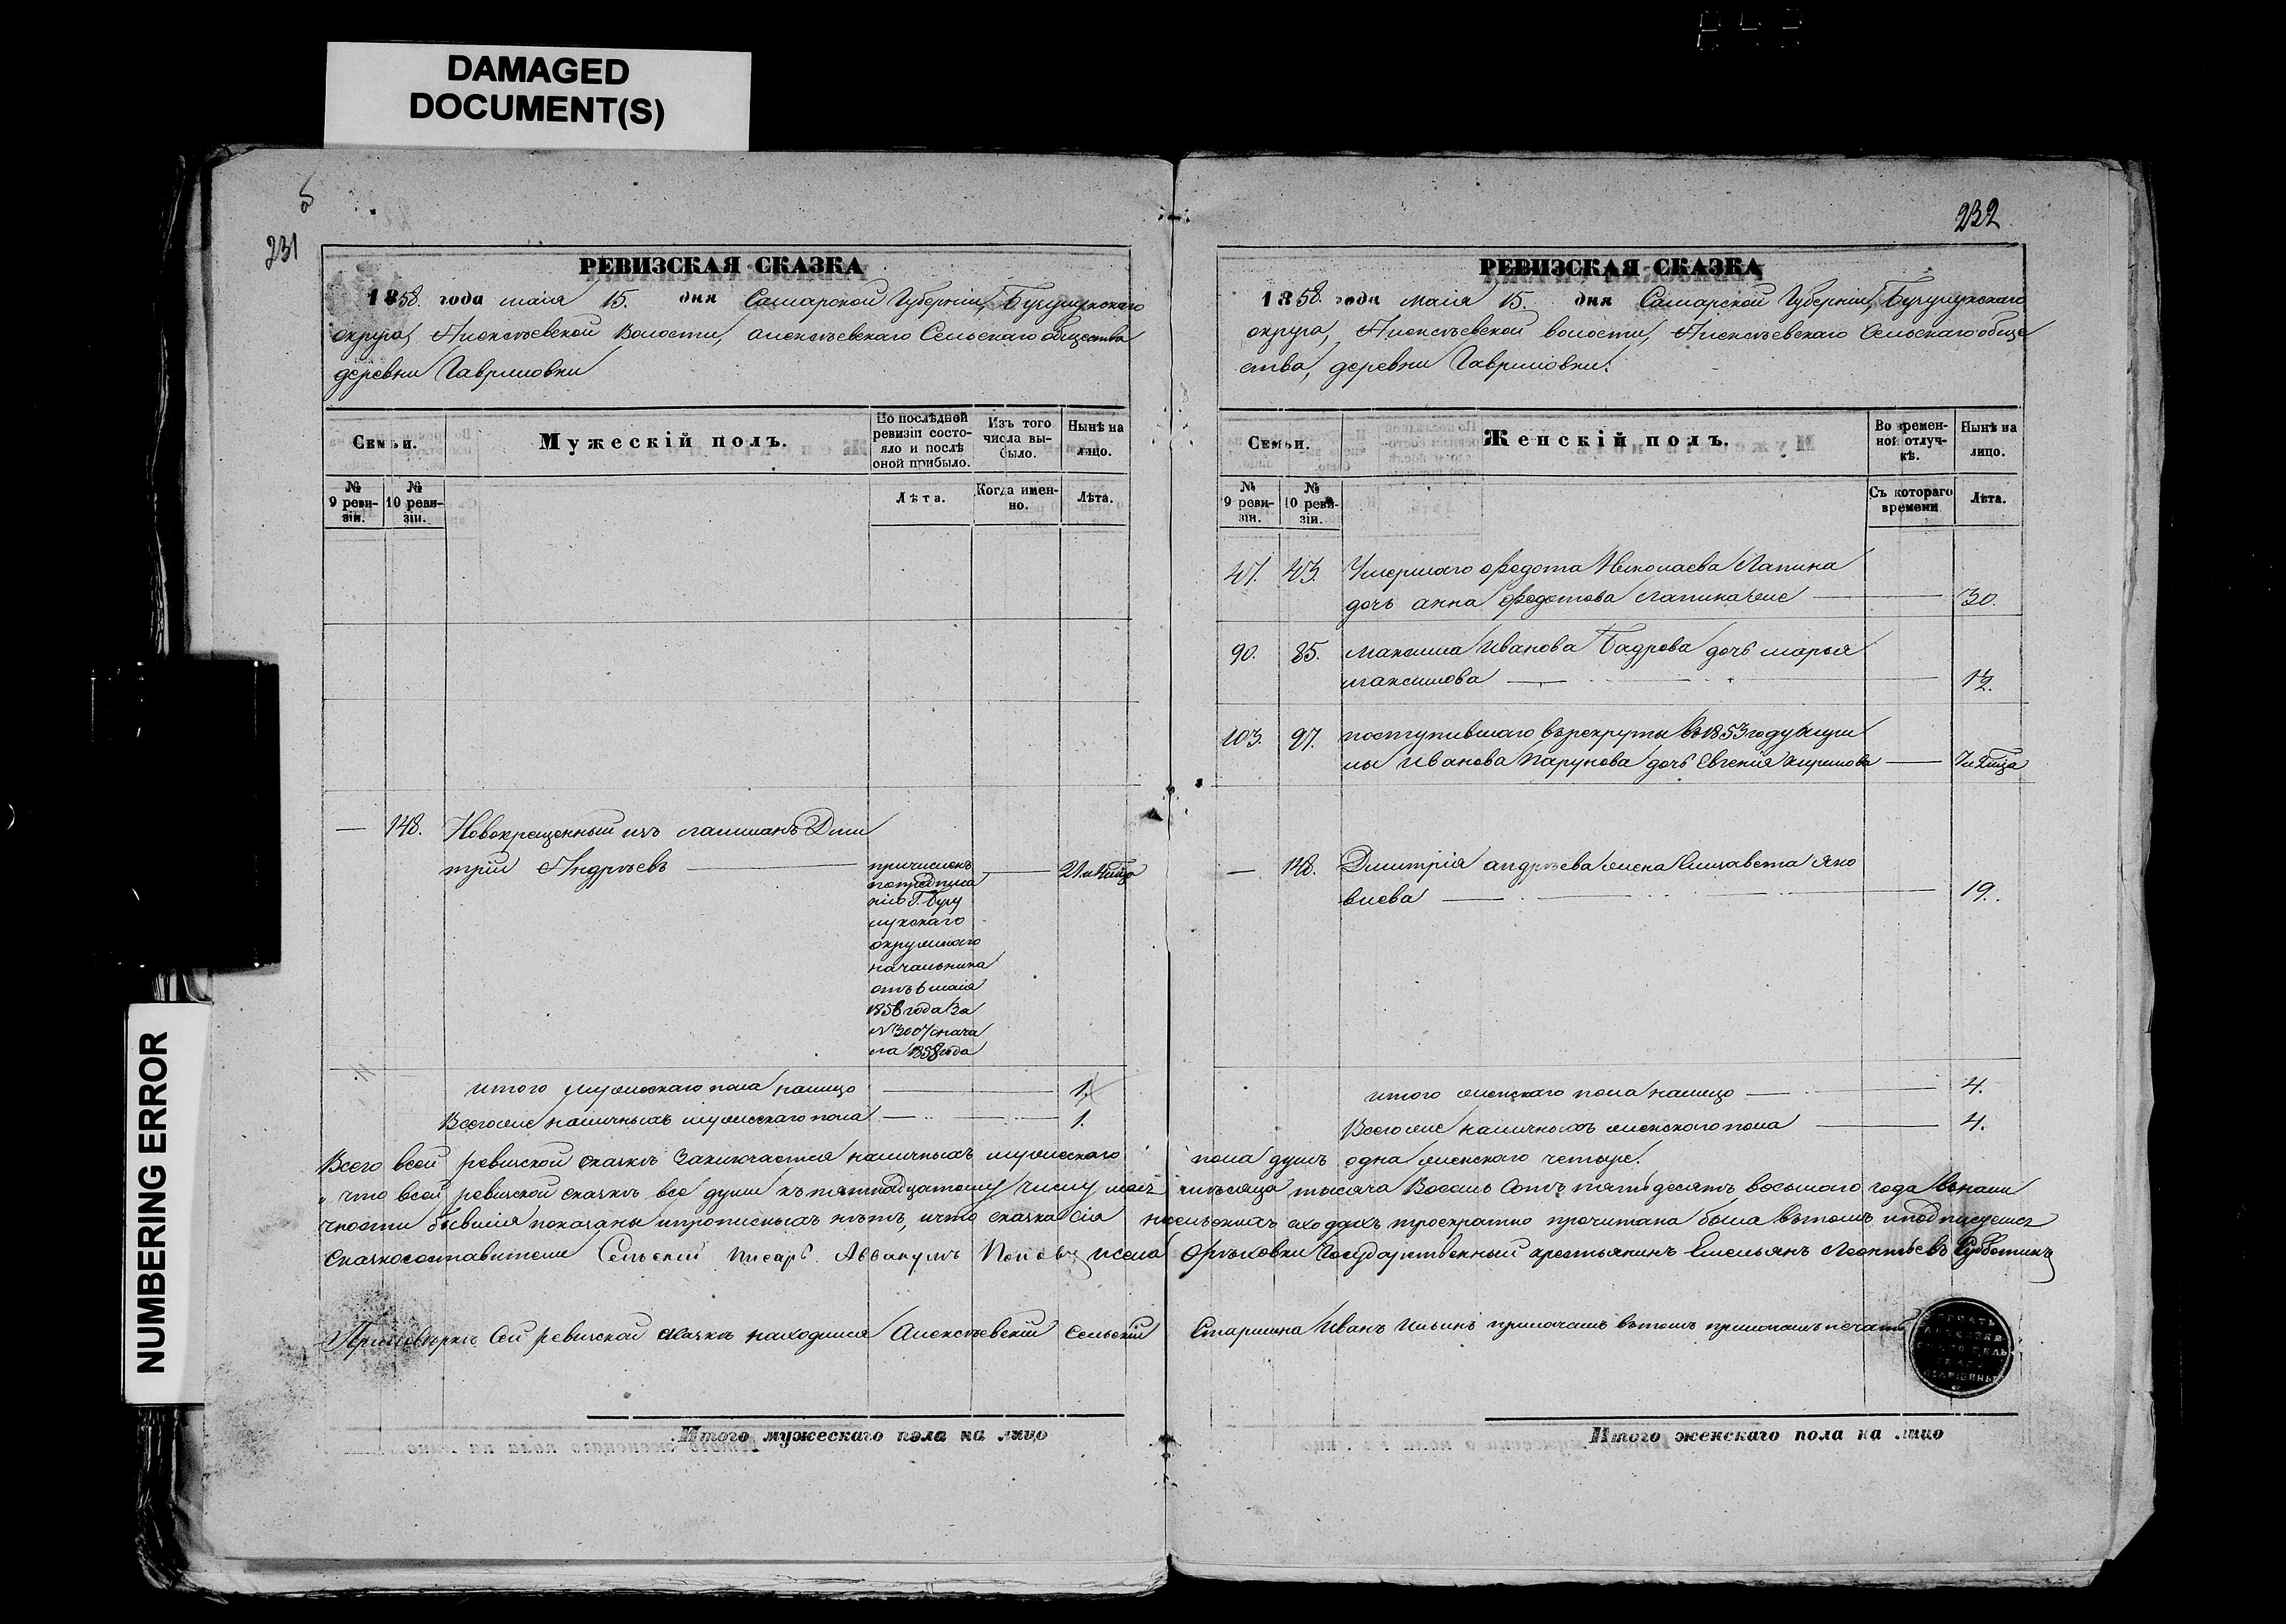 DAMAGED
DOCUMENT(S)
NUMBERING ERROR
231
РЕВИЗСКАЯ СКАЗКА
1858. года маія 15. дня Самарской Губерніи, Бугурусланскаго
округа, Алексѣевской Волости, алексѣевскаго Сельскаго общества
деревни Гавриловки
Семьи.
Мужескій полъ.
По послѣдней ревизіи состояло и послѣ оной прибыло.
Изъ того числа выбыло.
Нынѣ на лицо.
№ 9 ревизіи.
№ 10 ревизіи.
Лѣта.
Когда именно.
Лѣта.
— 148. Новокрещенный изъ Дми
трій Андрѣевъ —
причисленъ
по предписа
нію Г. Бугу
окружнаго
начальника
отъ 6 маія
1858 года за
№ 3007 снача
ла 1858 года
итого мужескаго пола налицо — 1.
Всего же наличныхъ мужескаго пола — 1.
232
РЕВИЗСКАЯ СКАЗКА
1858. года маія 15. дня Самарской Губерніи, Бугурусланскаго
округа, Алексѣевской волости, Алексѣевскаго Сельскаго обще
ства, деревни Гавриловки.
Семьи.
Женскій полъ.
Во временной отлучкѣ.
Нынѣ на лицо.
№ 9 ревизіи.
№ 10 ревизіи.
Съ котораго времени
Лѣта.
47. 43. Умершаго Федота Николаева Лапина
дочь анна Федотова — 30.
90. 85. Максима Иванова Бадрова дочь марья
максимова — 12.
103. 97. поступившаго въ рекруты въ 1853 году Кири
лы Иванова дочь Евгенія Кирилова —
— 148. Дмитрія андрѣева жена Елизавета Яко
влева — 19.
итого женскаго пола налицо — 4.
Всего же наличныхъ женскаго пола — 4.
Всего всей ревизской сказкѣ Заключается наличныхъ мужескаго пола душъ одна женскаго четыре.
что всей ревизской сказкѣ все души къ пятнадцатому числу мая мѣсяца тысяча Восемь Сотъ пятьдесятъ восьмаго года въ нали
чности бывшія показаны и прописныхъ нѣтъ, и что сказка сія на сельскихъ сходахъ троекратно прочитана была въ томъ и подписуемся
Сказкосоставители Сельскій Писарь Аввакумъ Поповъ и села Орѣховки Государственный крестьянинъ Емельянъ Леонтьевъ Субботинъ
При повѣркѣ Сей ревизской сказкѣ находился Алексѣевскій Сельскій Старшина Иванъ Ильинъ въ томъ приложилъ печать
Итого мужескаго пола на лицо
Итого женскаго пола на лицо